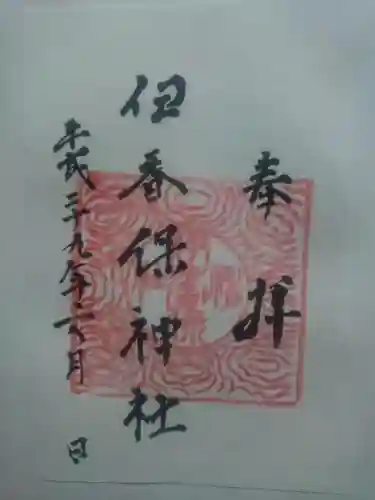 奉拝
伊香保神社
平成二十九年 月 日